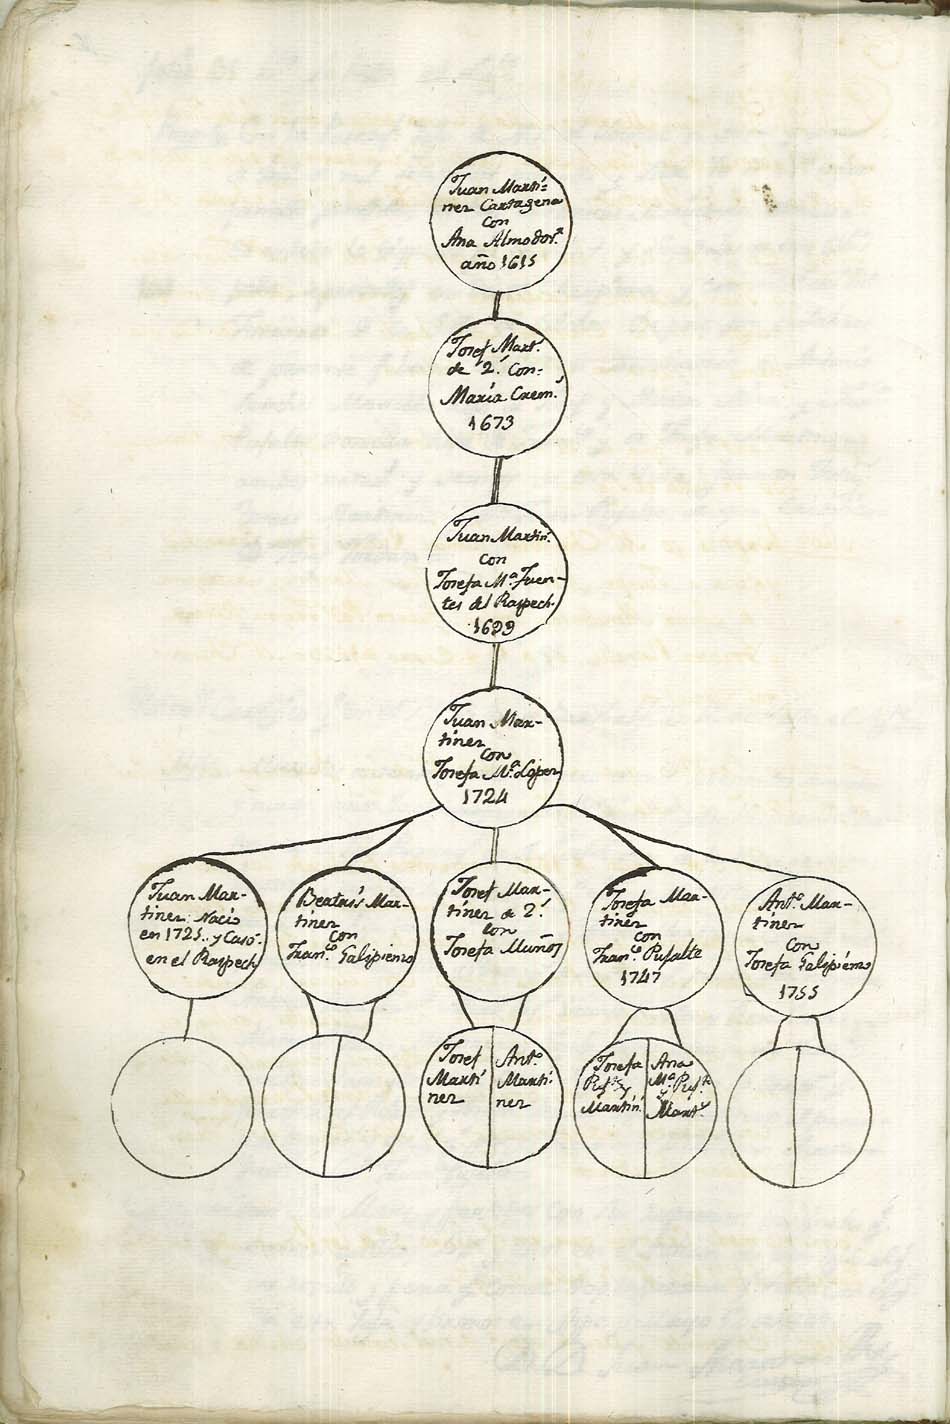 Juan Martí=
nez Cartagena
con
Ana Almodor.ª
año 1615
Josef Mart.
de 2.º Con=
María Crem.
1673
Juan Martín.
con
Josefa M.ª Fuen-
tes del Raspech.
1699
Juan Mar-
tínez
con
Josefa M.ª López
1724
Juan Mar-
tínez Nació
en 1725. y Casó
en el Raspech
Beatrís Mar-
tínez
con
Fran.co Galipienzo
Josef Mar-
tínez de 2.º
con
Josefa Muñoz
Josefa Mar-
tínez
con
Fran.co Pujalte
1747
Ant.º Mar-
tínez
con
Josefa Galipiénzo
1755
Josef
Martí
nez
Ant.º
Martí-
nez
Josefa
Puj.te y
Martín.
Ana
M.ª Puj.te
y
Mart.